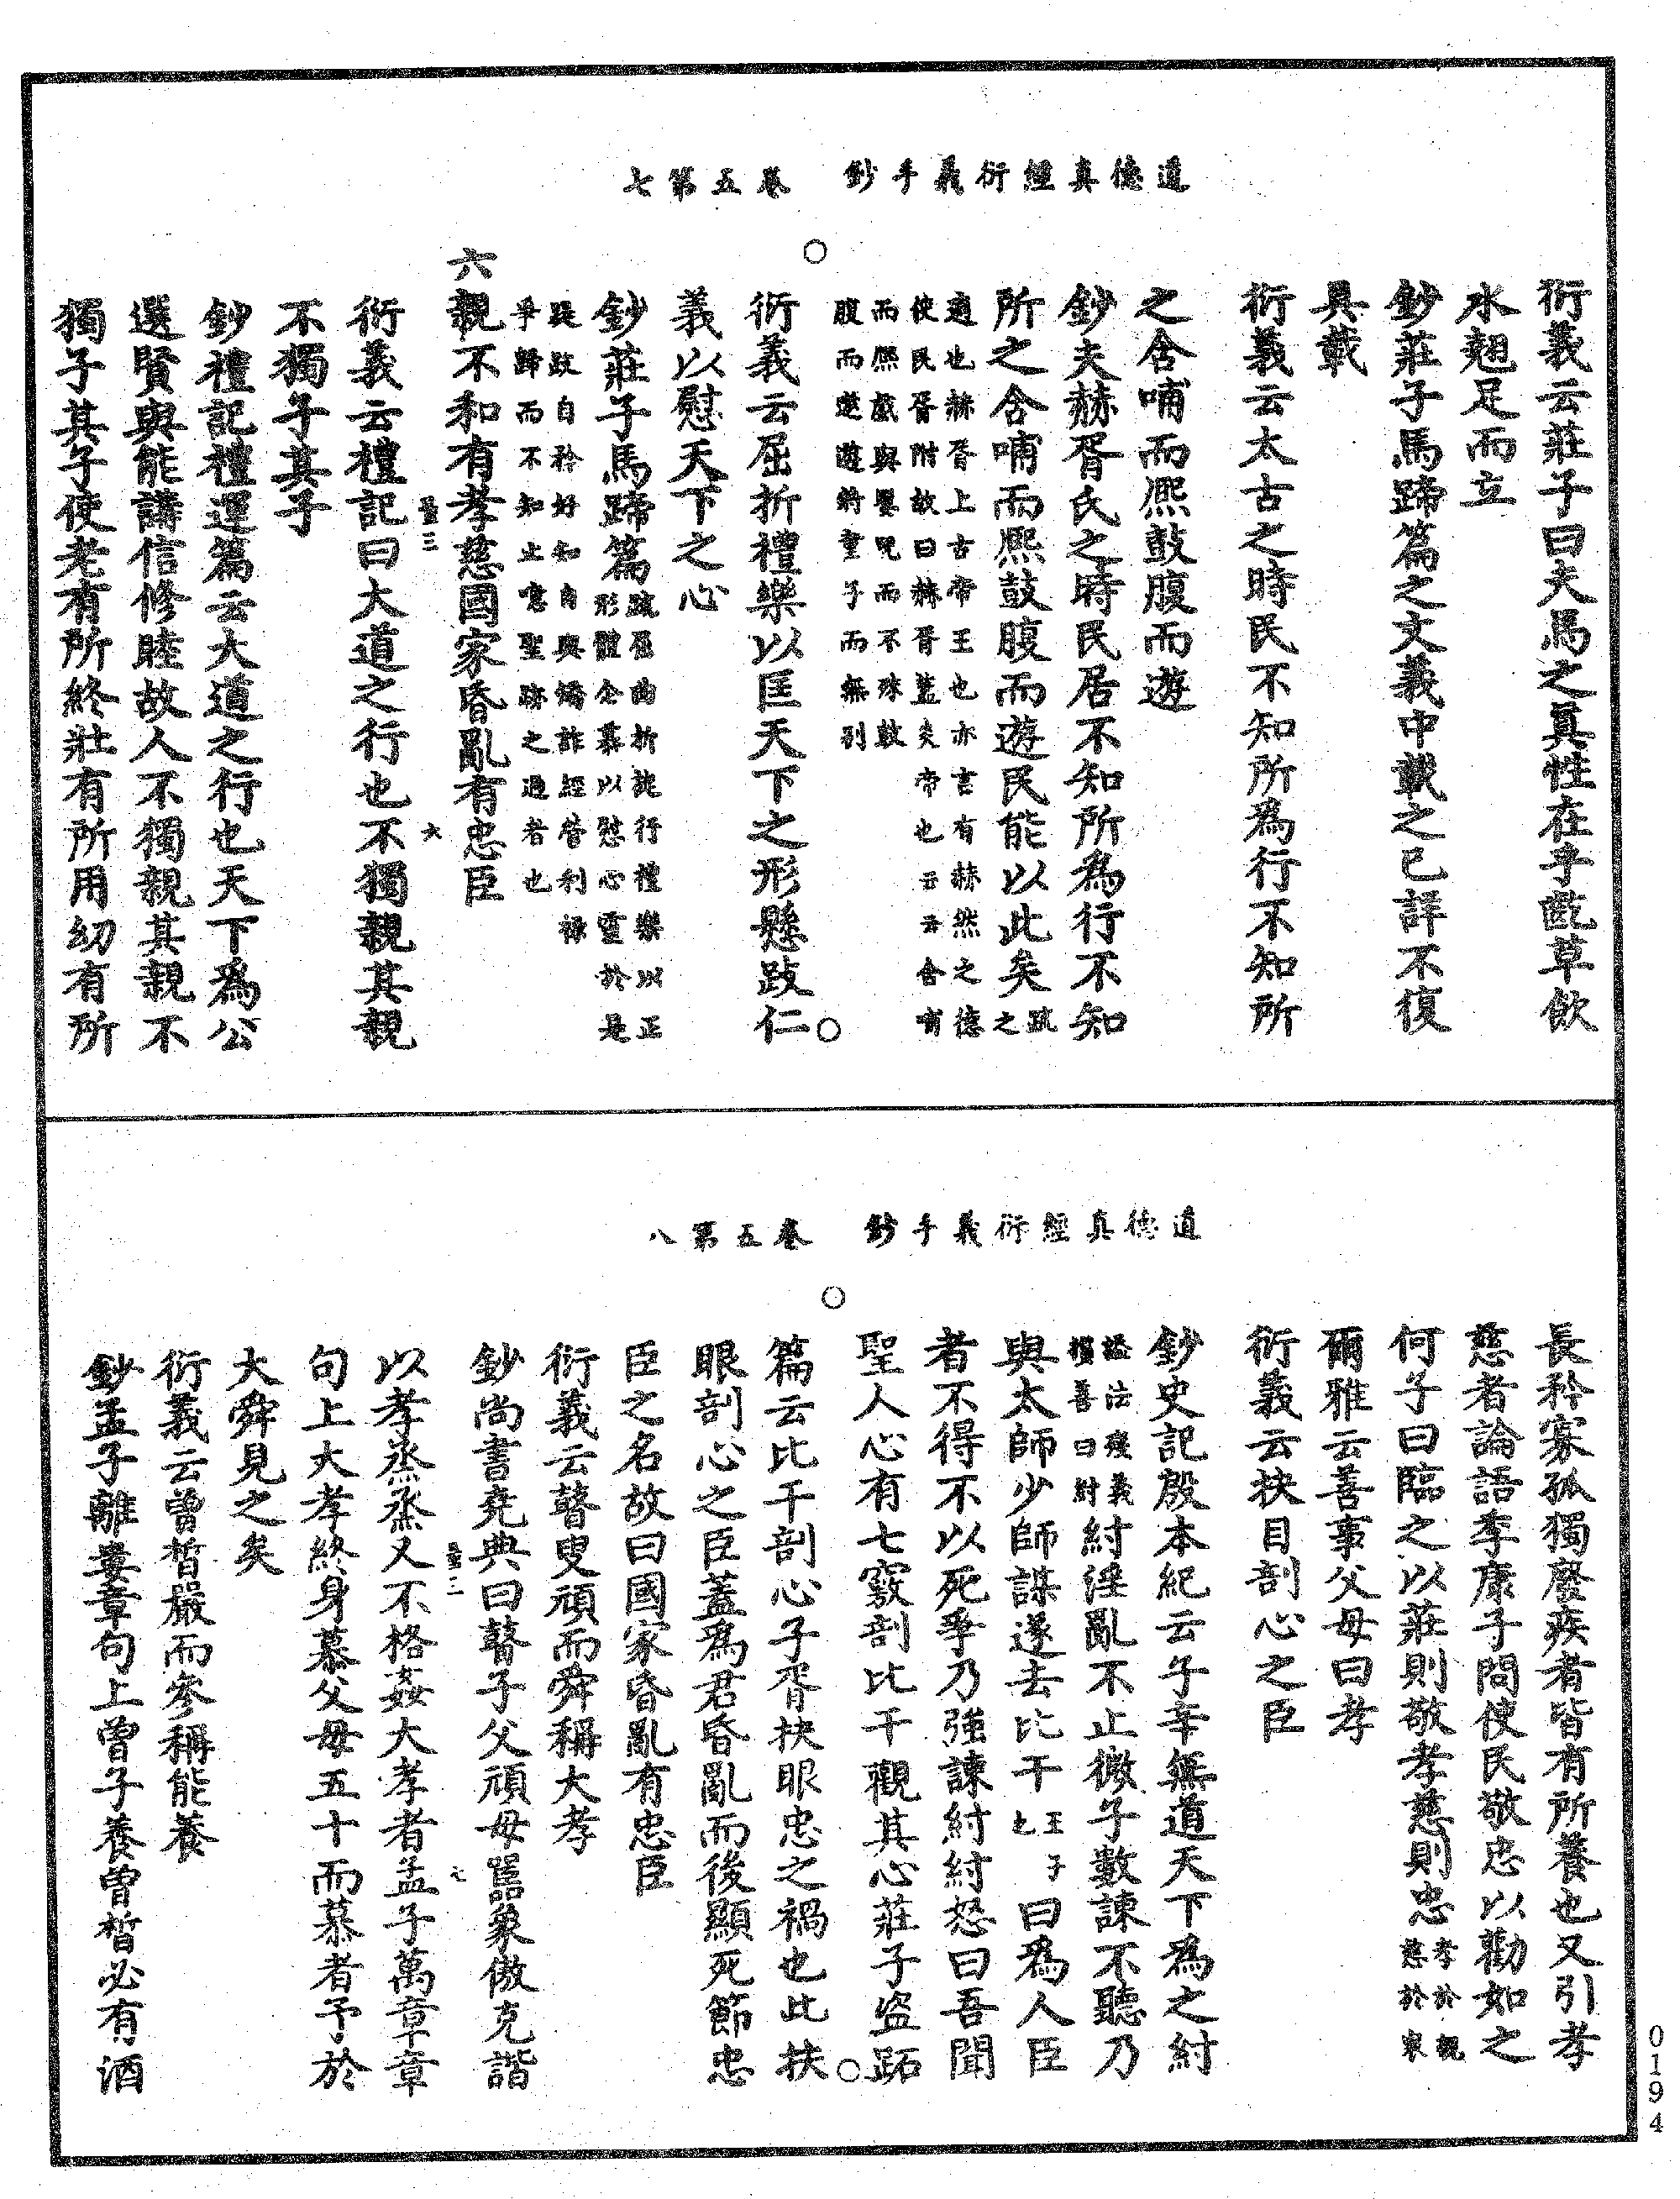 道德真經衍義手鈔　卷五第七
衍義云莊子曰夫馬之真性在乎齕草飲
水翹足而立
鈔莊子馬蹄篇之文義中載之已詳不復
具載
衍義云太古之時民不知所為行不知所
之含哺而熈鼓腹而遊
鈔夫赫胥氏之時民居不知所為行不知
所之含哺而熈鼓腹而遊民能以此矣䟽之
適也赫胥上古帝王也亦言有赫然之德
使民胥附故曰赫胥蓋炎帝也云云含哺
而熈戲與嬰兒而不殊鼓
腹而遨遊將童子而無別
衍義云屈折禮樂以匡天下之形懸跂仁
義以慰天下之心
鈔莊子馬蹄篇䟽屈曲折旋行禮樂以正
形體企慕以慰心靈於是
踶跂自矜好知自與矯詐經營利祿
爭歸而不知止噫聖跡之過者也
六親不和有孝慈國家昏亂有忠臣
衍義云禮記曰大道之行也不獨親其親
不獨子其子
鈔禮記禮運篇云大道之行也天下為公
選賢與能講信修睦故人不獨親其親不
獨子其子使老有所終壯有所用幼有所
道德真經衍義手鈔　卷五第八
長矜寡孤獨廢疾者皆有所養也又引孝
慈者論語季康子問使民敬忠以勸如之
何子曰臨之以莊則敬孝慈則忠孝於親
慈於衆
爾雅云善事父母曰孝
衍義云抉目剖心之臣
鈔史記殷本紀云子辛無道天下為之紂
謚法殘義
損善曰紂紂淫亂不止微子數諫不聽乃
與太師少師謀遂去比干王子
也曰為人臣
者不得不以死爭乃強諫紂紂怒曰吾聞
聖人心有七竅剖比干觀其心莊子盜跖
篇云比干剖心子胥抉眼忠之禍也此抉
眼剖心之臣蓋為君昏亂而後顯死節忠
臣之名故曰國家昏亂有忠臣
衍義云瞽叟頑而舜稱大孝
鈔尚書堯典曰瞽子父頑母嚚象傲克諧
以孝烝烝乂不格姦大孝者孟子萬章章
句上大孝終身慕父母五十而慕者予於
大舜見之矣
衍義云曾晳嚴而參稱能養
鈔孟子離婁章句上曾子養曾晳必有酒
0194